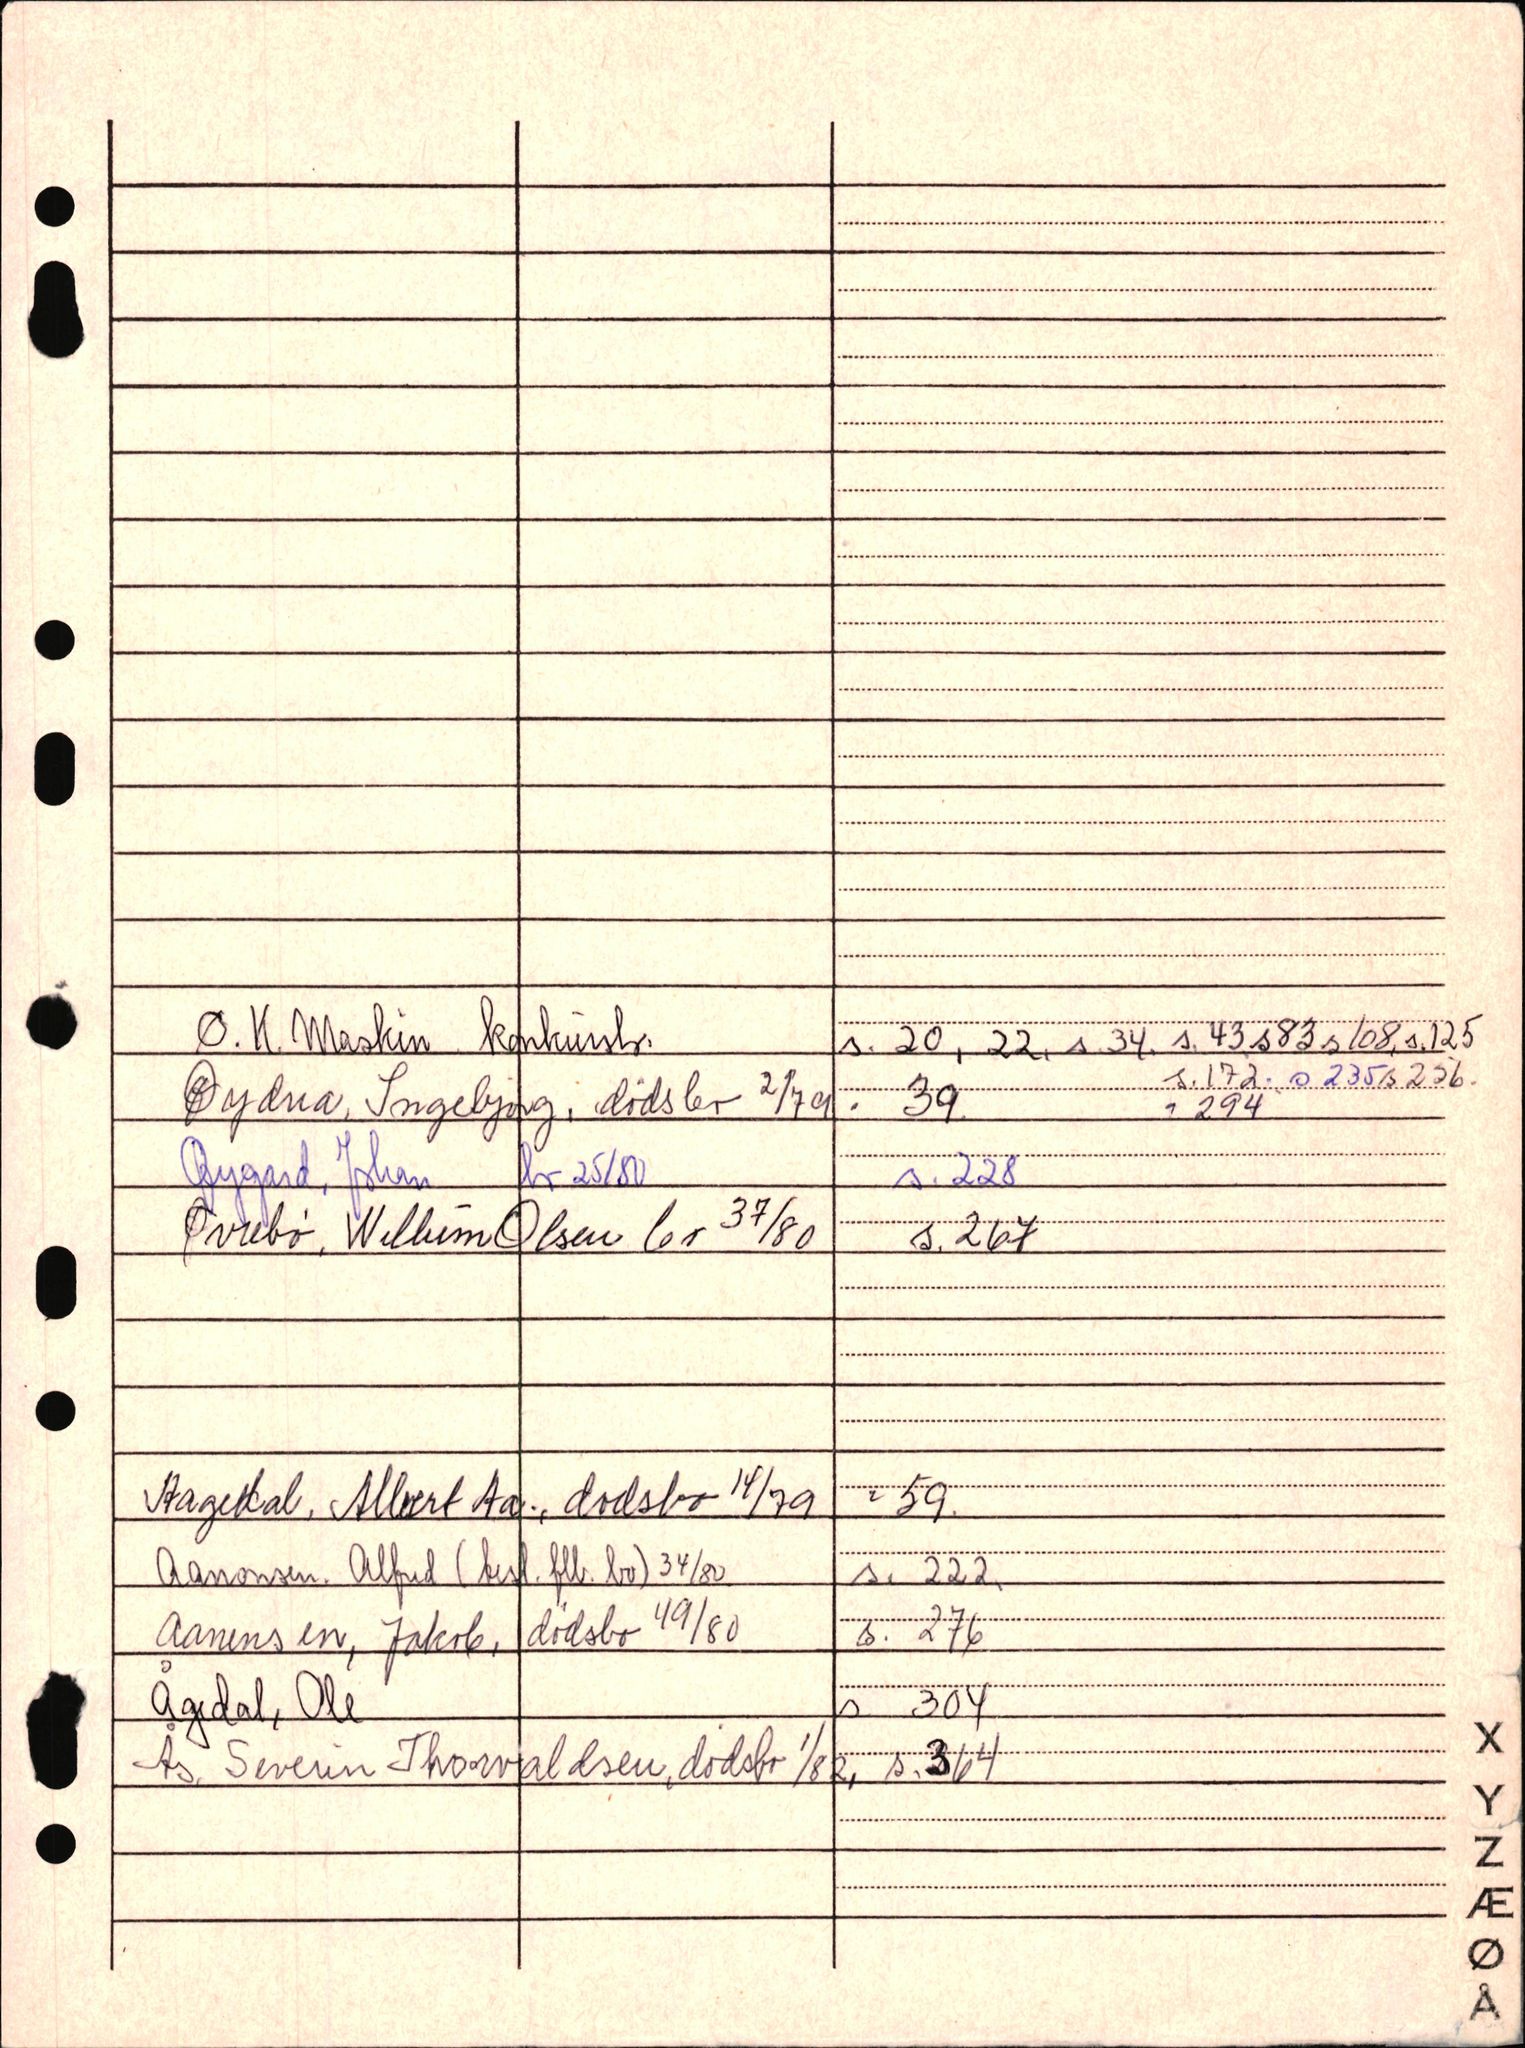 Ø. K. Maskin konkursb. s. 20, 22, s 34. s. 43 s 83 s 108, s. 125
s. 172. s 235 s 256.
Øydna, Ingebjørg, dødsbo 2/79 " 39. " 294
Øygard, Johan br 25/80 s. 228
Øvrebø, Wilhelm Olsen br 37/80 s. 267
Aagedal, Albert Aa., dødsbo 14/79 " 59.
Aanonsen. Alfred (besl. flb. bo) 34/80 s. 222.
Aanensen, Jakob, dødsbo 49/80 s. 276
Ågedal, Ole s 304
Ås, Severin Thorvaldsen, dødsbo 1/82, s. 364
X
Y
Z
Æ
Ø
Å